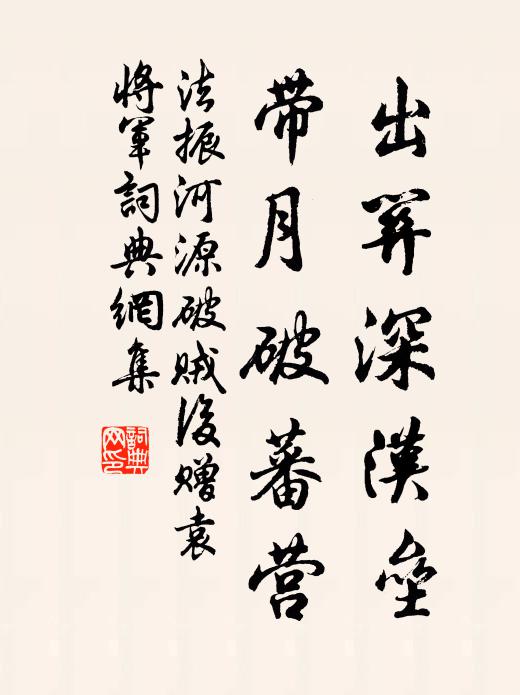 出关深汉垒
带月破蕃营
法振河源破贼后赠袁
将军词典网集
词典
网印